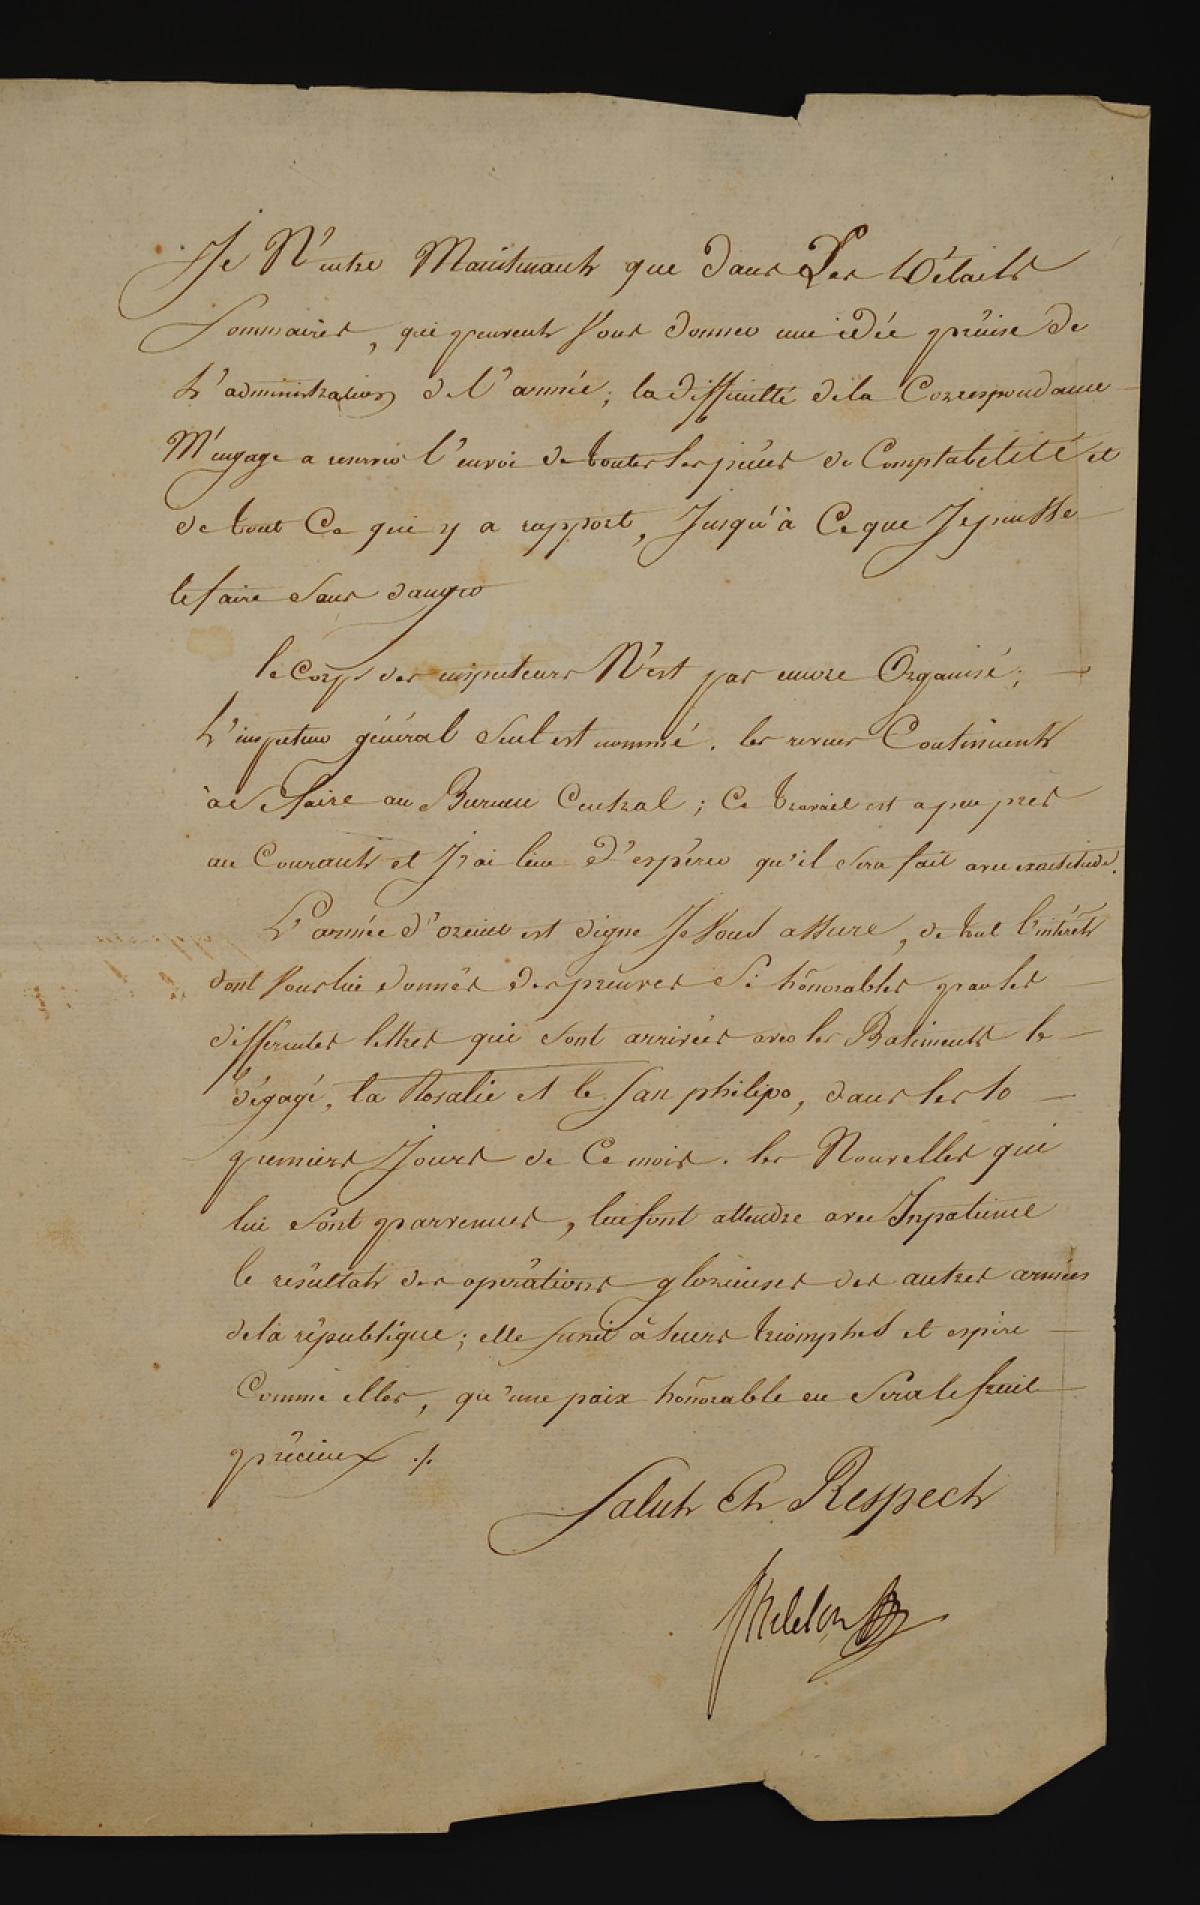 Je N'entre Maintenant que dans Des Détails
Sommaires, qui peuvent Vous donner une idée précise de
L'administration de l'armée; la difficulté de la Correspondance
M'engage a reserver l'envoi de toutes les pièces de Comptabilité et
de tout Ce qui y a rapport, Jusqu'à Ceque Je puisse
le faire Sans danger
le Corps des inspecteurs N'est pas encore Organisé;
L'inspecteur général Seul est nommé. les revues Continuent
à se faire au Bureau Central; Ce travail est a peu près
au Courant et J'ai lieu d'espérer qu'il Sera fait avec exactitude.
L'armée d'orient est digne Je Vous assure, de tout l'intérêt
dont Vous lui donnés des preuves Si hônorables par les
differentes lettres qui Sont arrivées avec les Batiments le
dégagé, la Rosalie et le San philipo, dans les 10
premiers Jours de Ce mois. les Nouvelles qui
lui Sont parvenues, lui font attendre avec Inpatience
le résultat des opérations glorieuses des autres armées
de la république; elle S'unit à leurs triomphes et espère
Comme elles, qu'une paix hônorable en Sera le fruit
précieux ./.
Salut Et Respect